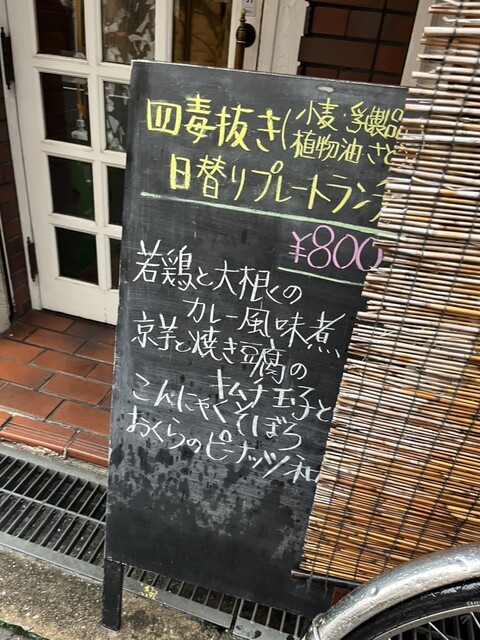 四毒抜き(小麦・乳製品
植物油さとう
日替りプレートランチ
¥800
若鶏と大根くの
カレー風味煮
京芋と焼き豆腐の
キムチ玉子と
こんにゃくそぼろ
おくらのピーナッツ和